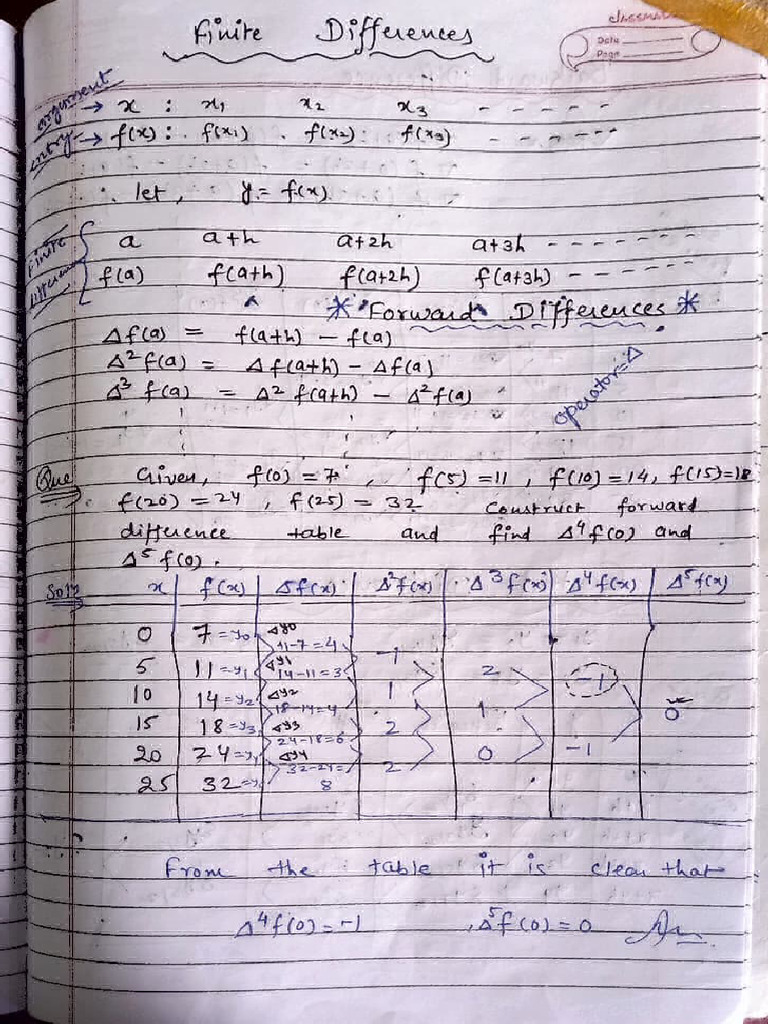 Finite Differences
Date
Page
argument → x : x₁ x₂ x₃ - - - - - -
entry → f(x) : f(x₁) . f(x₂) : f(x₃) - - - - - -
∴ let , y = f(x)
Finite Difference { a a+h a+2h a+3h - - - - - - -
f(a) f(a+h) f(a+2h) f(a+3h) - - - - - - -
* Forward Differences *
Δf(a) = f(a+h) - f(a)
Δ² f(a) = Δf(a+h) - Δf(a)
Δ³ f(a) = Δ² f(a+h) - Δ² f(a)
operator = Δ
Que Given, f(0) = 7 , f(5) = 11 , f(10) = 14, f(15) = 18
f(20) = 24 , f(25) = 32 Construct forward
difference table and find Δ⁴f(0) and
Δ⁵ f(0).
Solⁿ x f(x) Δf(x) Δ²f(x) Δ³f(x) Δ⁴f(x) Δ⁵f(x)
0 7 = y₀ Δy₀
11-7=4 -1
5 11 = y₁ Δy₁ 2
14-11=3 -1
10 14 = y₂ Δy₂ 1
18-14=4 1 0
15 18 = y₃ Δy₃ 2
24-18=6 0 -1
20 24 = y₄ Δy₄
32-24= 2
25 32 8
From the table it is clear that
Δ⁴f(0) = -1 , Δ⁵f(0) = 0 Ans